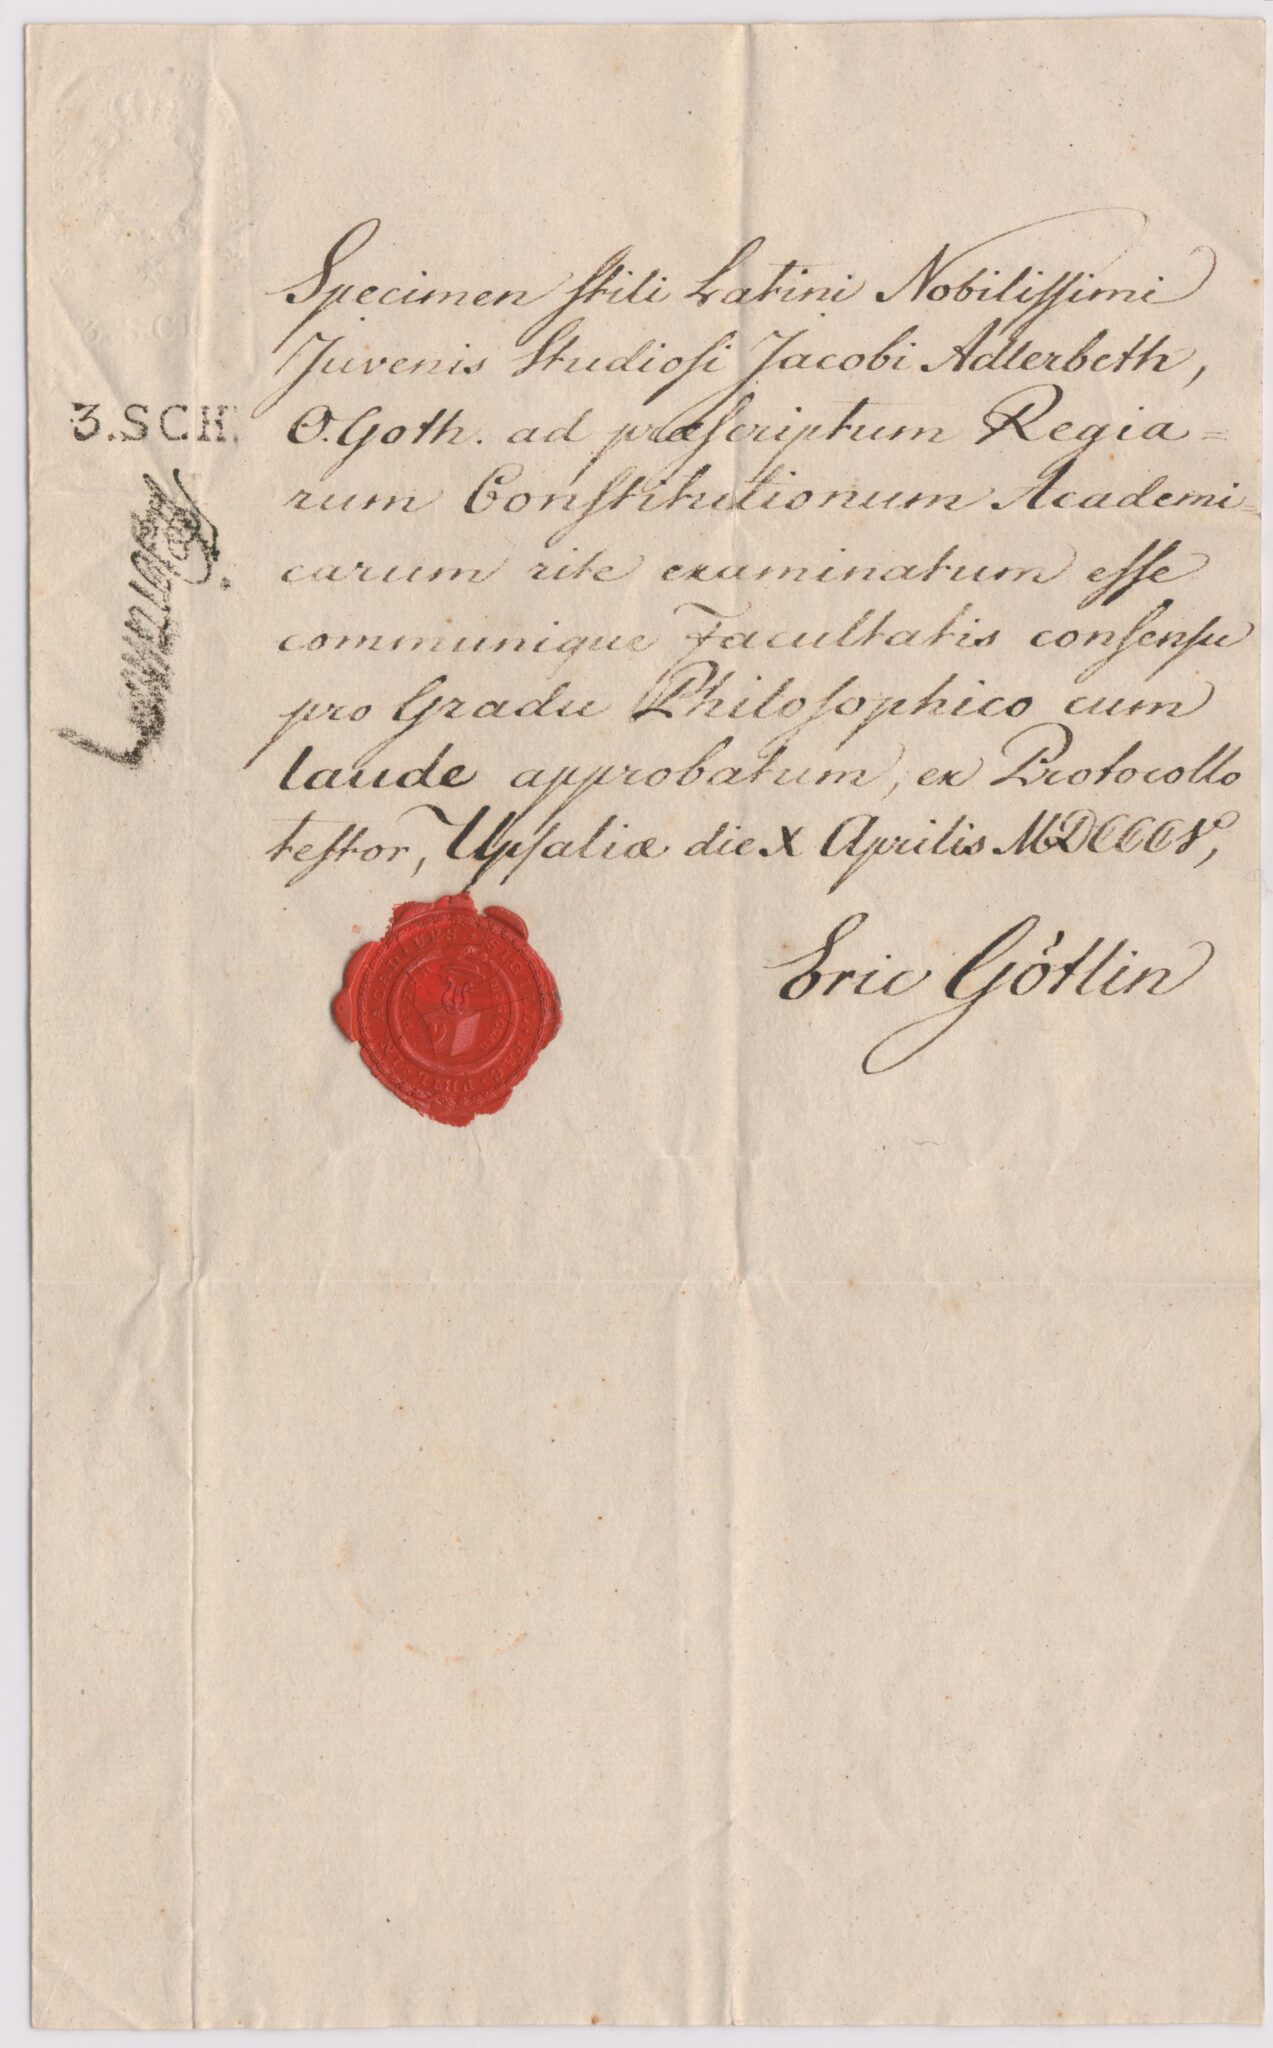 Specimen stili Latini Nobilissimi
Juvenis Studiosi Jacobi Adlerbeth,
O. Goth. ad præscriptum Regia=
rum Constitutionum Academi=
carum rite examinatum esse
communique Facultatis consensu
pro Gradu Philosophico cum
laude approbatum, ex Protocollo
testor, Upsaliæ die X Aprilis MDCCCVº,
Eric Götlin
3.SCH.